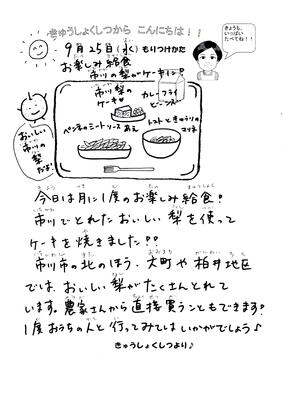 きゅうしょくしつから こんにちは！！
きょうも、
いっぱい
たべてね！！
9月25日(水) もりつけかた
お楽しみ給食
市川の梨がケーキに！
市川梨の
ケーキ
カレーフライ
ビーンズ
ペンネのミートソースあえ
トマトときゅうりの
マリネ
おいしい
市川の
梨だよ！
今日は月に1度のお楽しみ給食！
市川でとれたおいしい梨を使って
ケーキを焼きました！！
市川市の北のほう、大町や柏井地区
では、おいしい梨がたくさんとれて
います。農家さんから直接買うこともできます！
1度おうちの人と行ってみてはいかがでしょう♪
きゅうしょくしつより♪